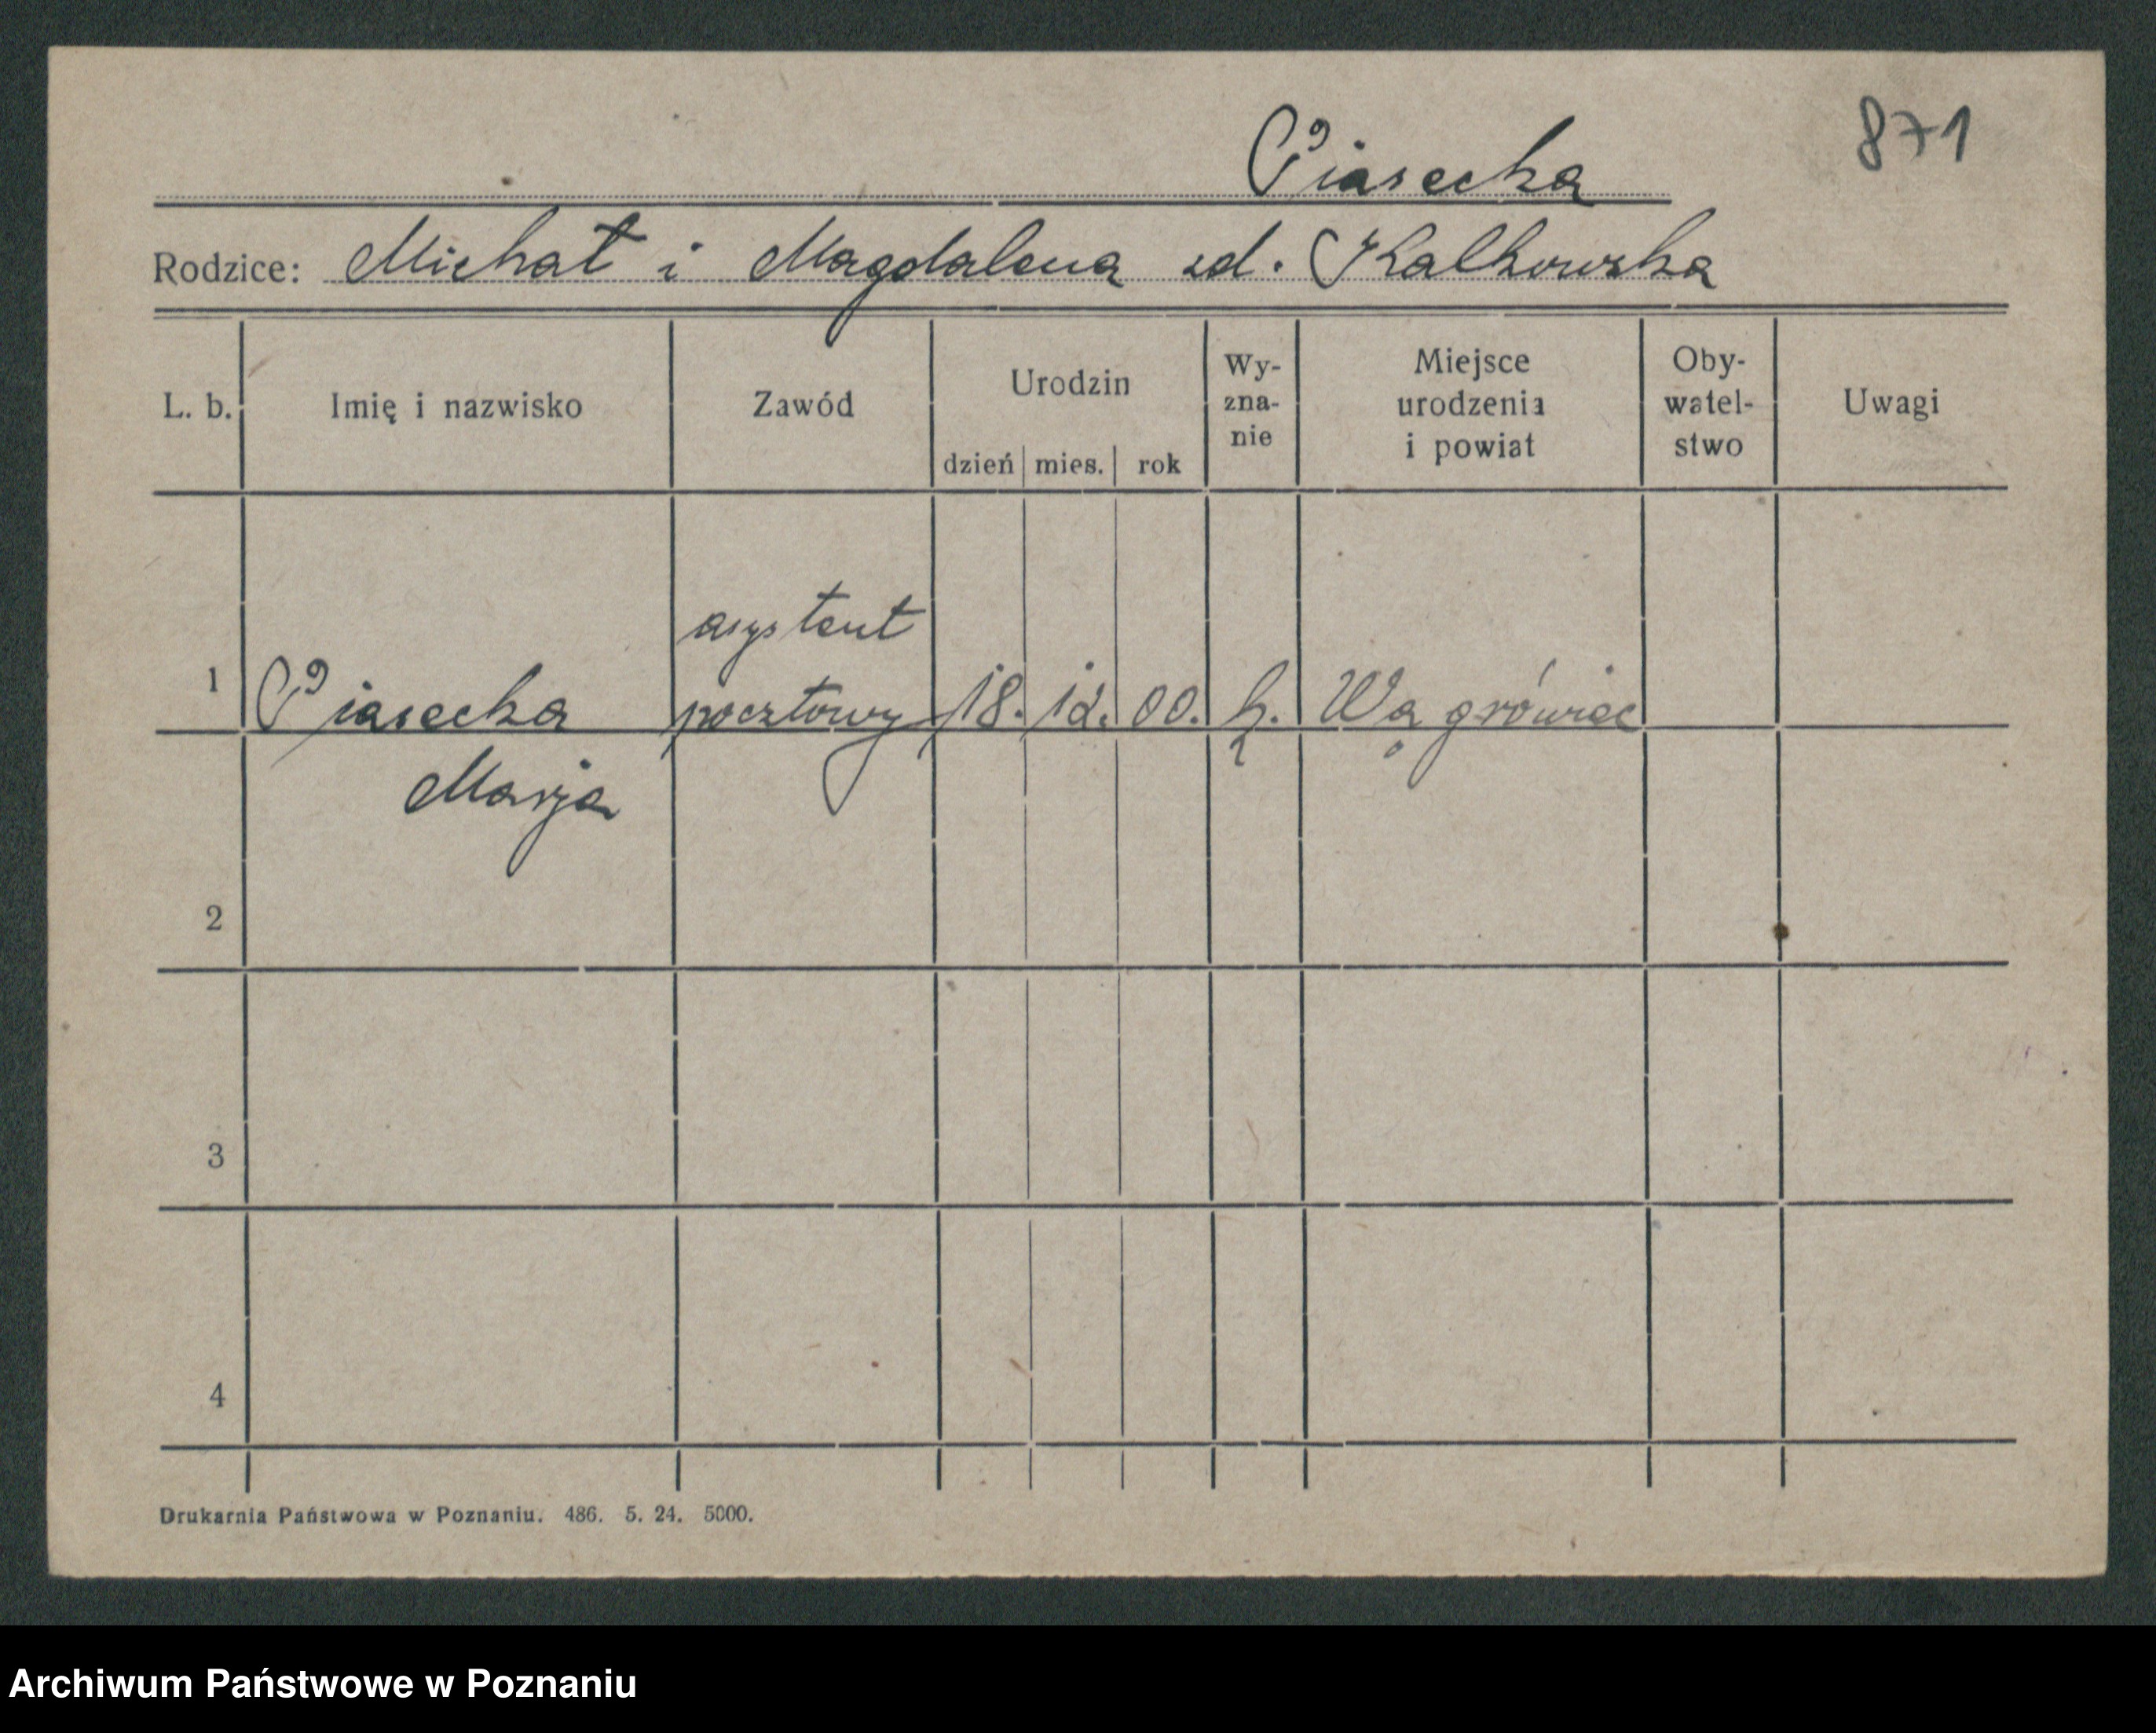 871
Piasecka
Rodzice: Michał i Magdalena zd. Kalkowska
L. b. Imię i nazwisko Zawód Urodzin dzień mies. rok Wy-zna-nie Miejsce urodzenia i powiat Oby-watel-stwo Uwagi
asystent
1 Piasecka pocztowy 18. 12. 00. k. Wągrówiec
Marja
2
3
4
Drukarnia Państwowa w Poznaniu. 486. 5. 24. 5000.
Archiwum Państwowe w Poznaniu